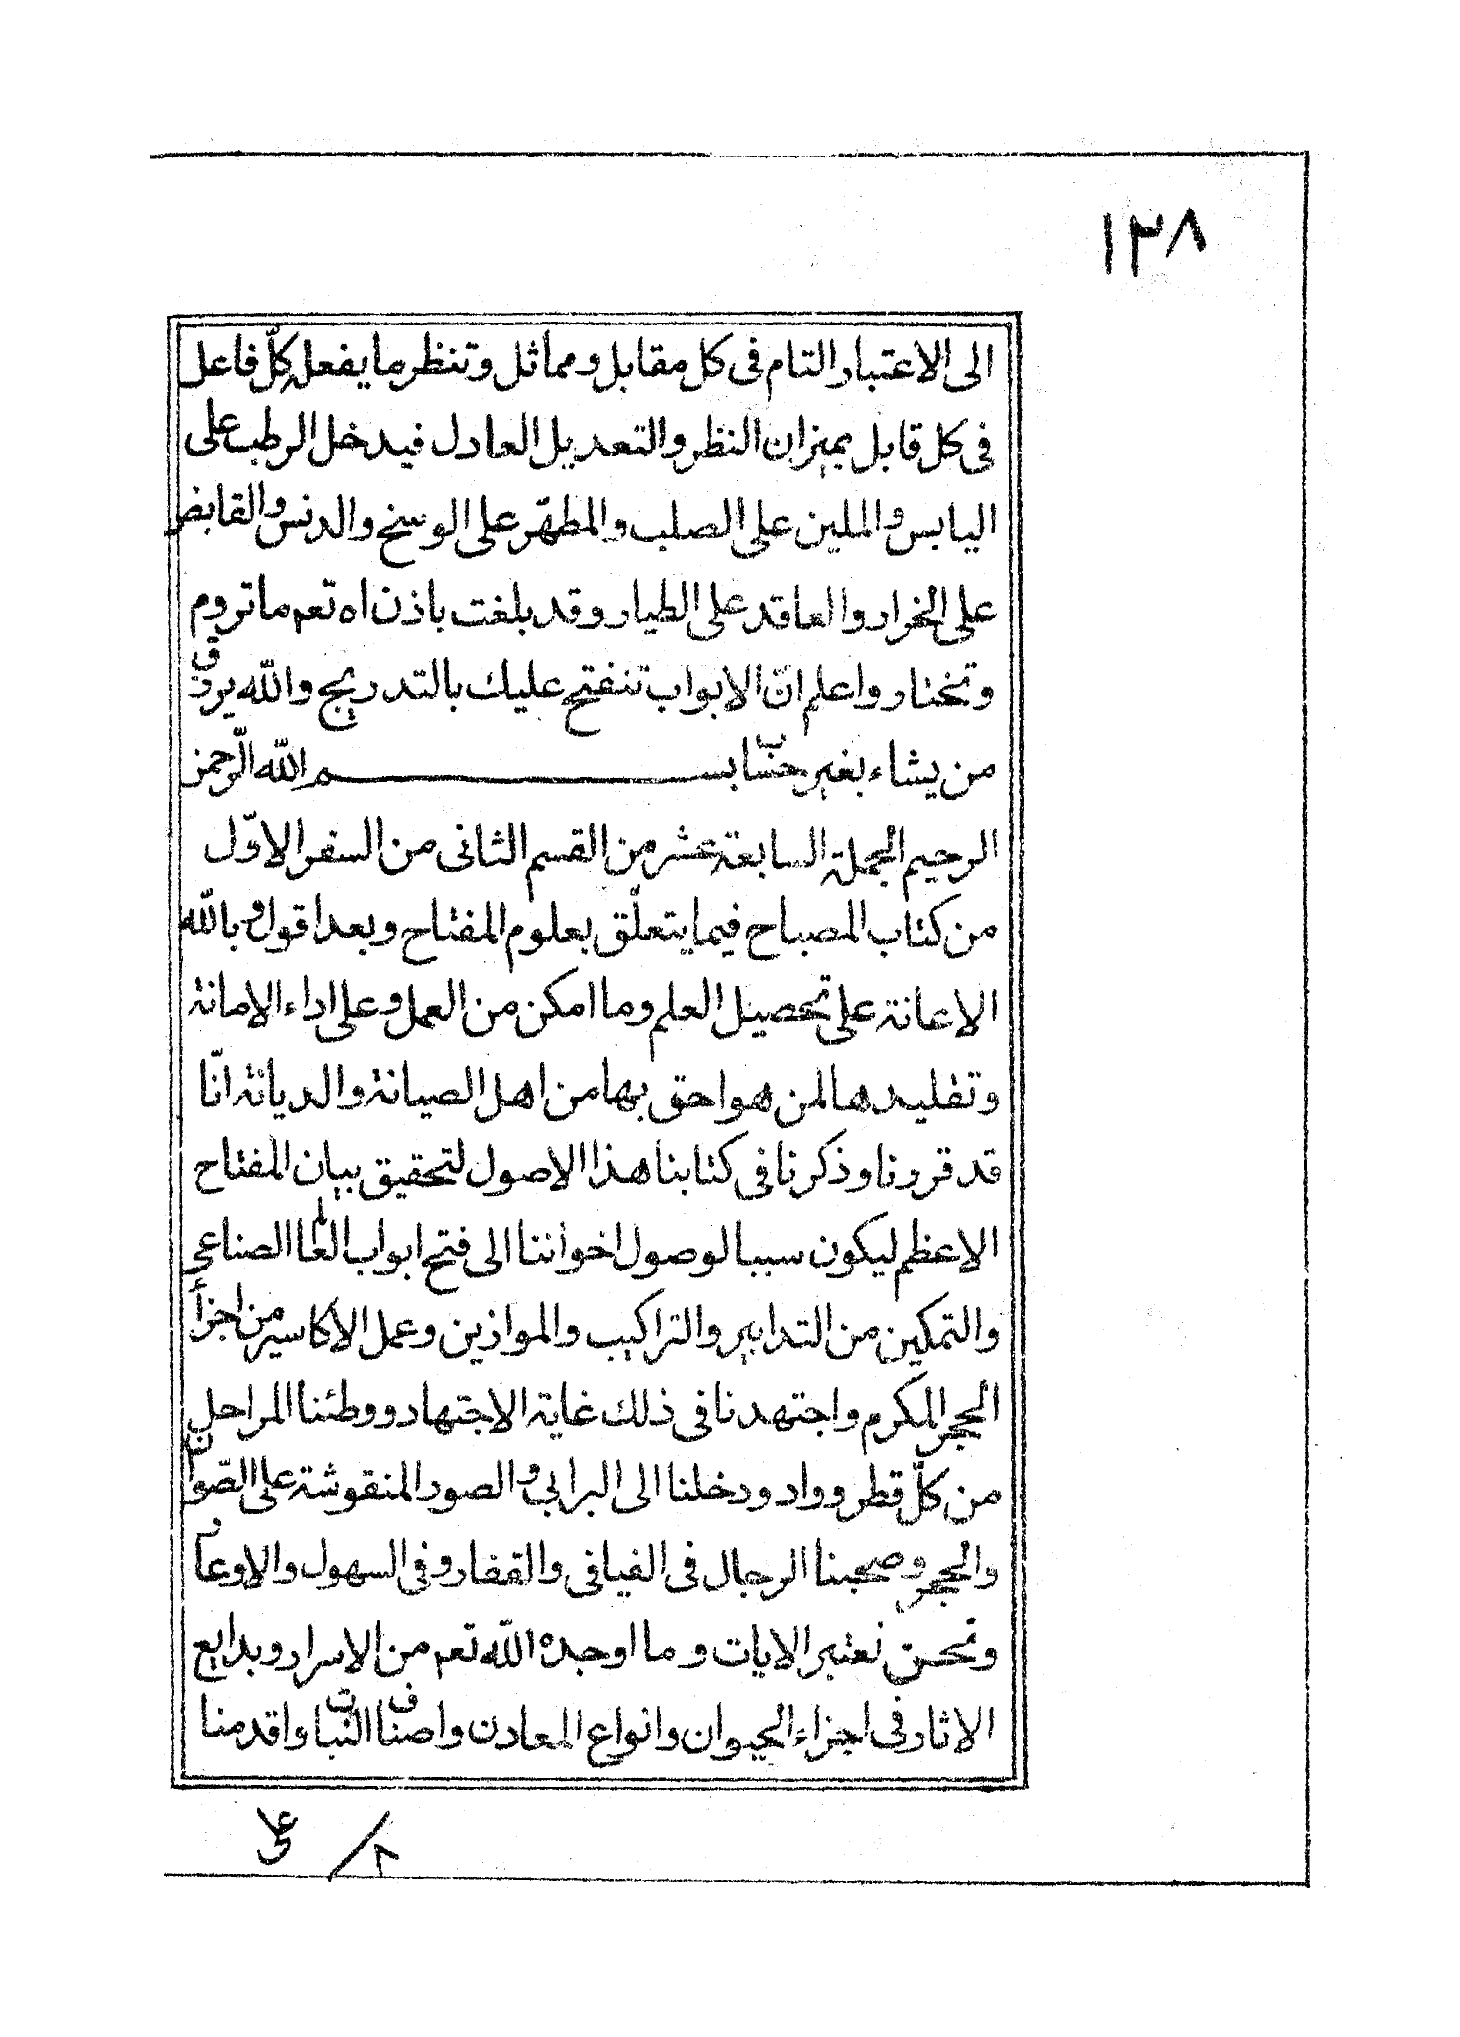 ١٣٨
الى الاعتبار التام فى كل مقابل ومماثل وتنظر ما يفعله كلّ فاعل
فى كل قابل بميزان النظر والتعديل العادل فيدخل الرطب على
اليابس والملين على الصلب والمطهّر على الوسخ والدنس والقابض
على الخرار والعاقد على الطيار وقد بلغت باذن اه تعم ما تروم
وتختار واعلم انّ الابواب تنفتح عليك بالتدريج والله يرزق
من يشاء بغير حساب بسم الله الرحمن
الرحيم الجملة السابعة عشر من القسم الثانى من السفر الاوّل
من كتاب المصباح فيما يتعلّق بعلوم المفتاح وبعد اقول وبالله
الاعانة على تحصيل العلم وما امكن من العمل وعلى اداء الامانة
وتقليدها لمن هو احق بها من اهل الصيانة والديانة انّا
قد قررنا وذكرنا فى كتابنا هذا الاصول لتحقيق بيان المفتاح
الاعظم ليكون سببا لوصول اخواننا الى فتح ابواب العالم الصناعى
والتمكين من التدابير والتراكيب والموازين وعمل الأكاسير من اجزأ
الحجر المكرم واجتهدنا فى ذلك غاية الاجتهاد ووطئنا المراحل
من كلّ قطر وواد ودخلنا الى البرابي والصور المنقوشة على الصّوان
والحجر وصحبنا الرجال فى الفيافى والقفار وفى السهول والاوعار
ونحن نعتبر الايات وما اوجده الله تعم من الاسرار وبدايع
الاثار فى اجزاء الحيوان وانواع المعادن واصناف النبات واقدمنا
على
٢